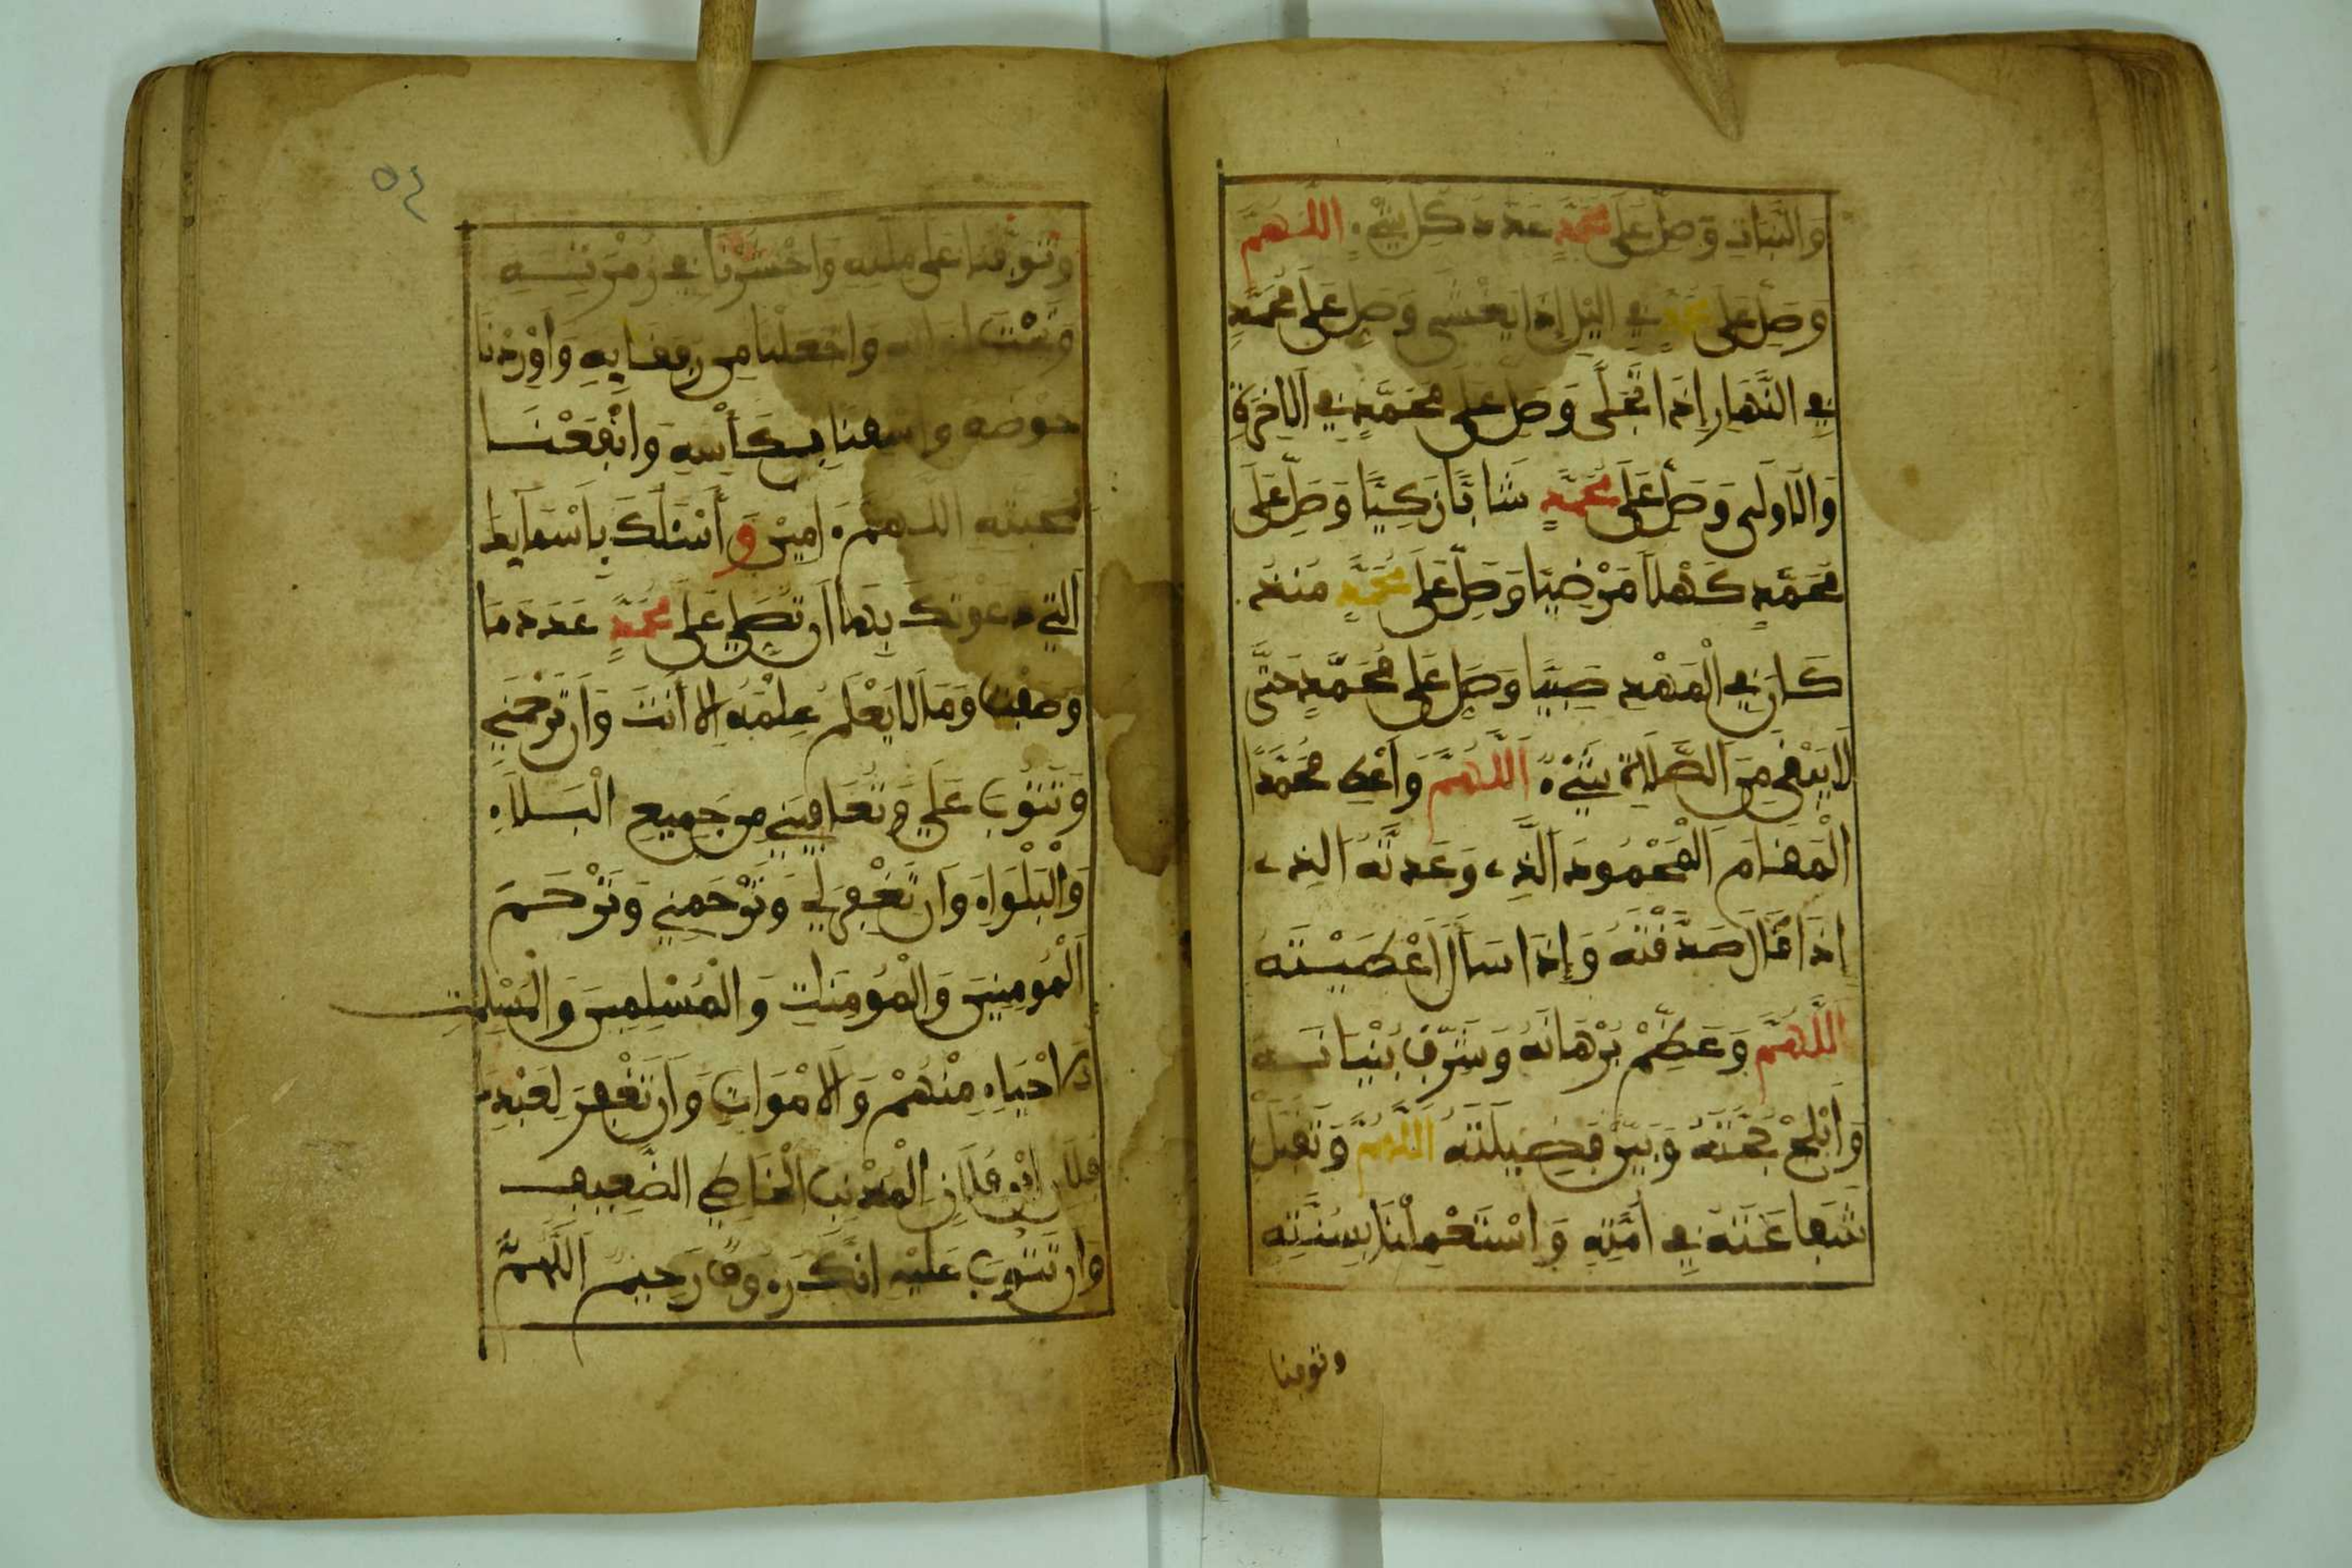 وَالنَّبَاتِ وَصَلِّ عَلَى مُحَمَّدٍ عَدَدَ كُلِّ شَيْءٍ اللَّهُمَّ
وَصَلِّ عَلَى مُحَمَّدٍ فِي الَّيْلِ إِذَا يَغْشَى وَصَلِّ عَلَى مُحَمَّدٍ
فِي النَّهَارِ إِذَا تَجَلَّى وَصَلِّ عَلَى مُحَمَّدٍ فِي الَاخِرَةِ
وَالُاولَى وَصَلِّ عَلَى مُحَمَّدٍ شَابًّا زَكِيًّا وَصَلِّ عَلَى
مُحَمَّدٍ كَهْلًا مَرْضِيًّا وَصَلِّ عَلَى مُحَمَّدٍ مُنْذُ
كَانَ فِي الْمَهْدِ صَبِيًّا وَصَلِّ عَلَى مُحَمَّدٍ حَتَّى
لَا يَبْقَى مِنَ الصَّلَاةِ شَيْءٌ اللَّهُمَّ وَأَعْطِ مُحَمَّدًا
الْمَقَامَ الْمَحْمُودَ الَّذِي وَعَدتَّهُ الَّذِي
إِذَا قَالَ صَدَّقْتَهُ وَإِذَا سَأَلَ أَعْطَيْتَهُ
اللَّهُمَّ وَعَظِّمْ بُرْهَانَهُ وَشَرِّفْ بُنْيَانَهُ
وَأَبْلِجْ حُجَّتَهُ وَبَيِّنْ فَضِيلَتَهُ اللَّهُمَّ وَتَقَبَّلْ
شَفَاعَتَهُ فِي أُمَّتِهِ وَاسْتَعْمِلْنَا بِسُنَّتِهِ
وتوفنا
٥٤
وَتَوَفَّنَا عَلَى مِلَّتِهِ وَاحْشُرْنَا فِي زُمْرَتِهِ
وَتَحْتَ لِوَائِهِ وَاجْعَلْنَا مِن رُفَقَائِهِ وَأَوْرِدْنَا
حَوْضَهُ وَاسْقِنَا بِكَأْسِهِ وَانْفَعْنَا
بِمَحَبَّتِهِ اللَّهُمَّ ءَامِينَ وَأَسْئَلُكَ بِأَسْمَائِكَ
الَّتِي دَعَوْتُكَ بِهَا أَن تُصَلِّيَ عَلَى مُحَمَّدٍ عَدَدَ مَا
وَصَفْتُ وَمَا لَا يَعْلَمُ عِلْمَهُ إِلَّا أَنتَ وَأَن تَرْحَمَنِي
وَتَتُوبَ عَلَيَّ وَتُعَافِيَنِي مِن جَمِيعِ الْبَلَاءِ
وَالْبَلْوَاءِ وَأَن تَغْفِرَ لِي وَتَرْحَمَنِي وَتَرْحَمَ
الْمُومِنِينَ وَالْمُومِنَاتِ وَالْمُسْلِمِينَ وَالْمُسْلِمَاتِ
الَاحْيَاءِ مِنْهُمْ وَالَامْوَاتِ وَأَن تَغْفِرَ لِعَبْدِكَ
فُلَانِ ابْنِ فُلَانٍ الْمُذْنِبِ الْخَاطِي الضَّعِيفِ
وَأَن تَتُوبَ عَلَيْهِ إِنَّكَ رَءُوفٌ رَحِيمٌ اللَّهُمَّ